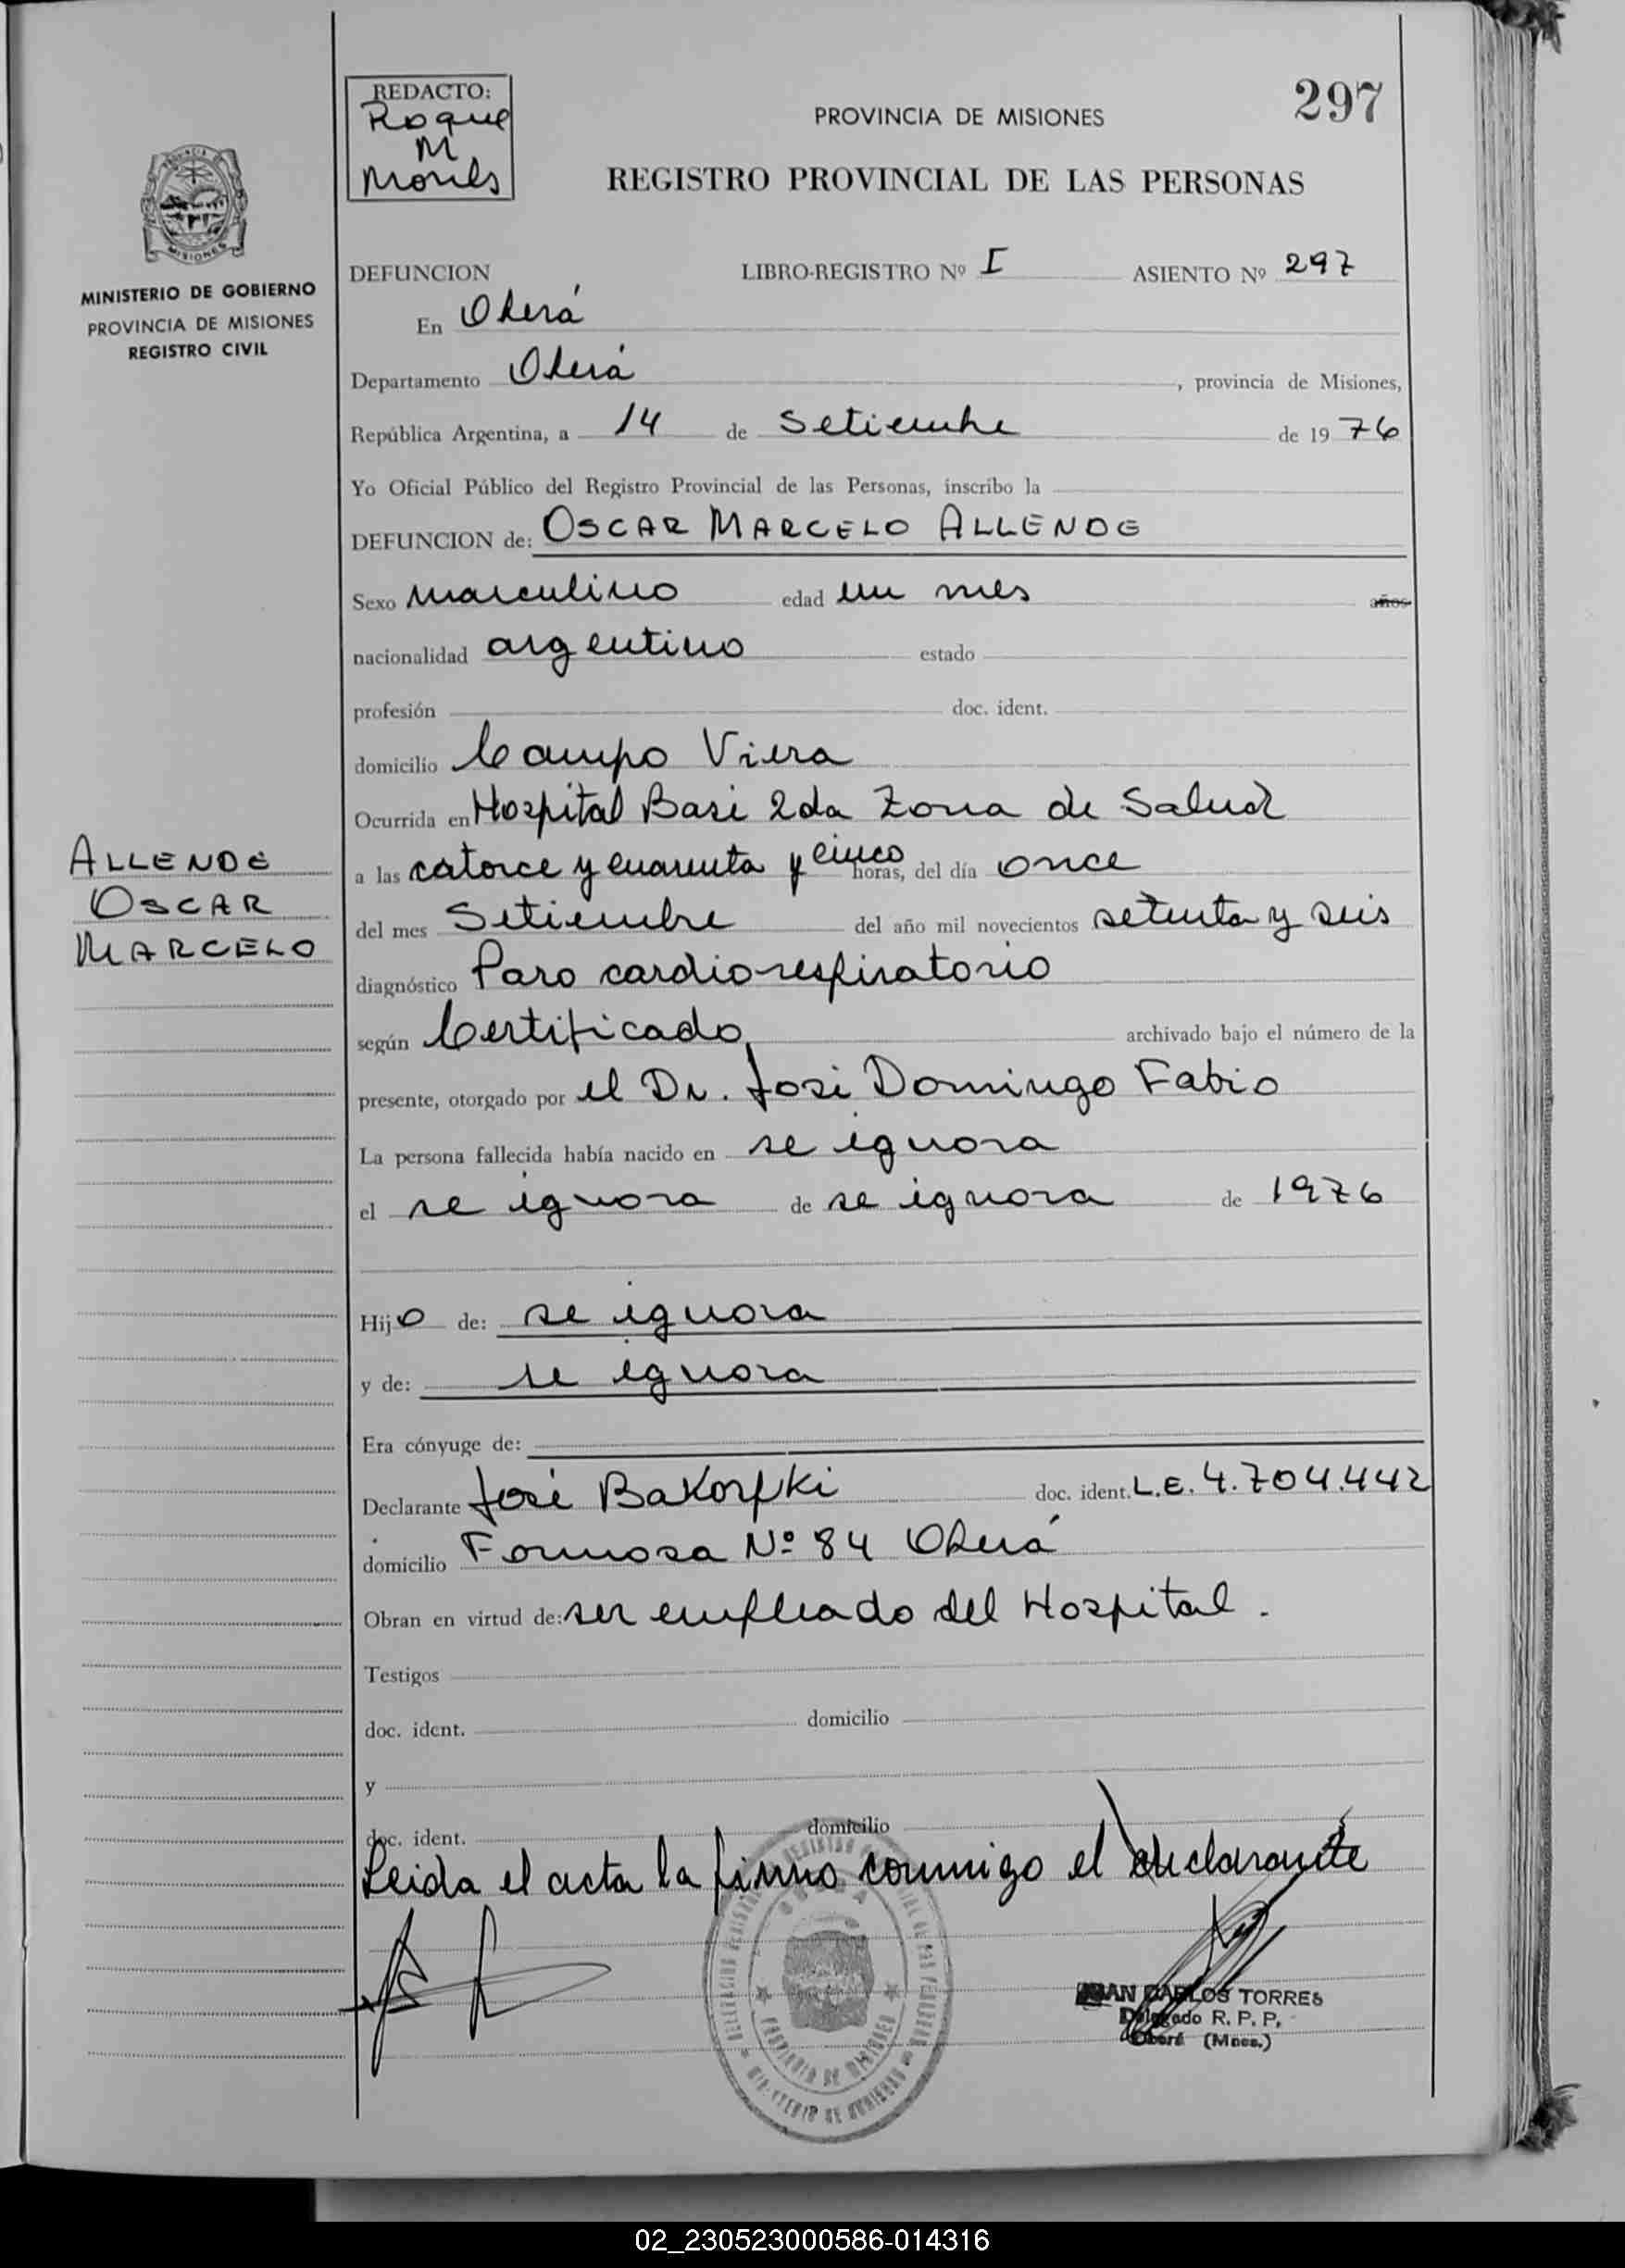 297
REDACTO:
Roque
M
PROVINCIA DE MISIONES
REGISTRO PROVINCIAL DE LAS PERSONAS
MISIONES
MINISTERIO DE GOBIERNO
PROVINCIA DE MISIONES
REGISTRO CIVIL
DEFUNCION LIBRO-REGISTRO Nº I ASIENTO Nº 297
En Oberá
Departamento Oberá, provincia de Misiones,
República Argentina, a 14 de Setiembre de 1976
Yo Oficial Público del Registro Provincial de las Personas, inscribo la
DEFUNCION de: OSCAR MARCELO ALLENDE
Sexo masculino edad un mes años
nacionalidad argentino estado
profesión doc. ident.
domicilio Campo Viera
Ocurrida en Hospital Base 2da Zona de Salud
ALLENDE
OSCAR
MARCELO
a las catorce y cuarenta y cinco horas, del día once
del mes Setiembre del año mil novecientos setenta y seis
diagnóstico Paro cardio-respiratorio
según Certificado archivado bajo el número de la
presente, otorgado por el Dr. José Domingo Fabio
La persona fallecida había nacido en se ignora
el se ignora de se ignora de 1976
Hijo de: se ignora
y de: se ignora
Era cónyuge de:
Declarante José doc. ident. L.E. 4.704.442
domicilio Formosa Nº 84 Oberá
Obran en virtud de: ser empleado del Hospital.
Testigos
doc. ident. domicilio
y
doc. ident. domicilio
Leida el acta la firmo conmigo el declarante
JUAN CARLOS TORRES
Delegado R. P. P.
Oberá (Mnes.)
PROVINCIA DE MISIONES
02_230523000586-014316